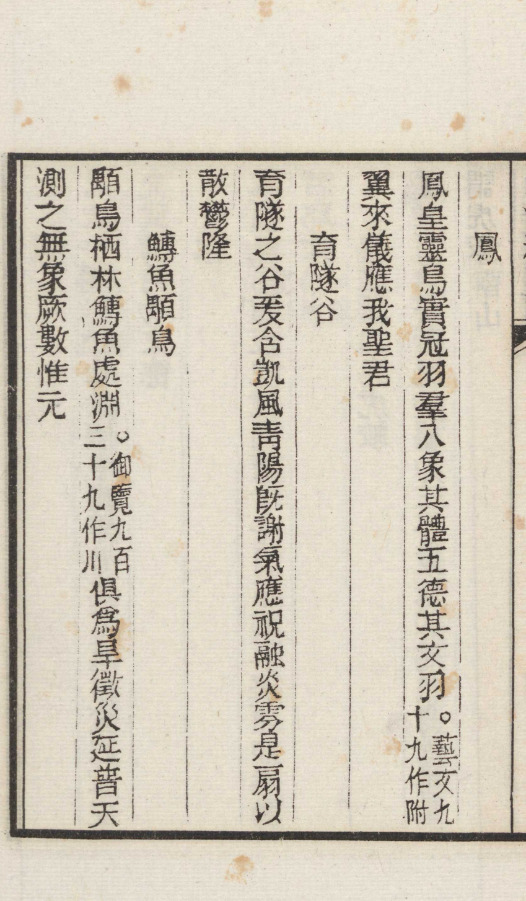 鳳
鳳皇靈鳥實冠羽羣八象其體五德其文羽。藝文九十九作附
翼來儀應我聖君
育隧谷
育隧之谷爰含凱風青陽旣謝氣應祝融炎雰是扇以
散鬱隆
鱄魚顒鳥
顒鳥栖林鱄魚處淵。御覽九百三十九作川俱爲旱徵災延普天
測之無象厥數惟元